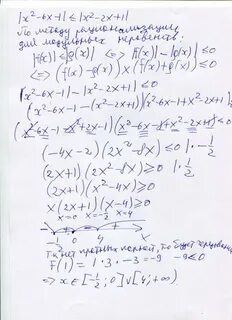 |x²-6x-1| ≤ |x²-2x+1|
По методу рационализации
для модульных неравенств:
|f(x)| ≤ |g(x)| <=> |f(x)| - |g(x)| ≤ 0
<=> (f(x)-g(x)) × (f(x)+g(x)) ≤ 0
(x²-6x-1-(x²-2x+1))(x²-6x-1+x²-2x+1) ≤ 0
(x²-6x-1-x²+2x-1)(x²-6x-1+x²-2x+1) ≤ 0
(-4x-2)(2x²-8x) ≤ 0 | · -1/2
(2x+1)(2x²-8x) ≥ 0 | · 1/2
(2x+1)(x²-4x) ≥ 0
x(2x+1)(x-4) ≥ 0
x=0 x=-1/2 x=4
Т.к. нет кратных корней, то будет
F(1) = 1 · 3 · -3 = -9 -9 ≤ 0
=> x ∈ [-1/2; 0] ∪ [4; +∞)